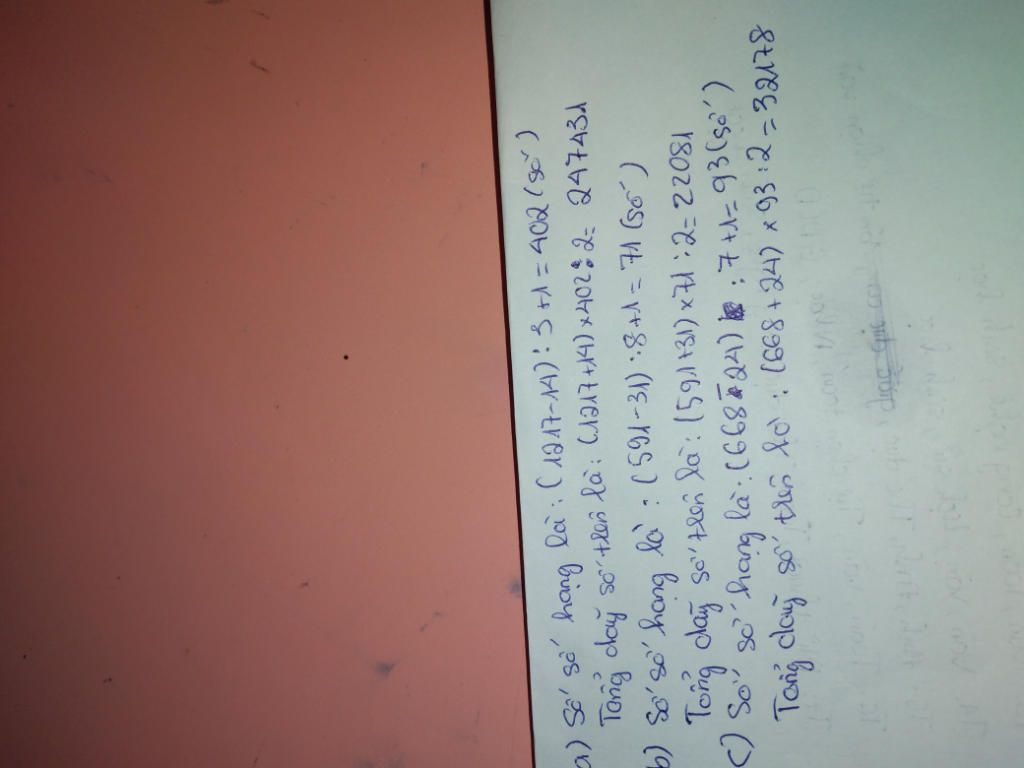 a) Số số hạng là: (1217-14):3+1=402 (số)
Tổng dãy số trên là: (1217+14)×402:2= 247431
b) Số số hạng là: (591-31):8+1=71 (số)
Tổng dãy số trên là: (591+31)×71:2=22081
c) Số số hạng là: (668-24):7+1=93 (số)
Tổng dãy số trên là: (668+24)×93:2=32178